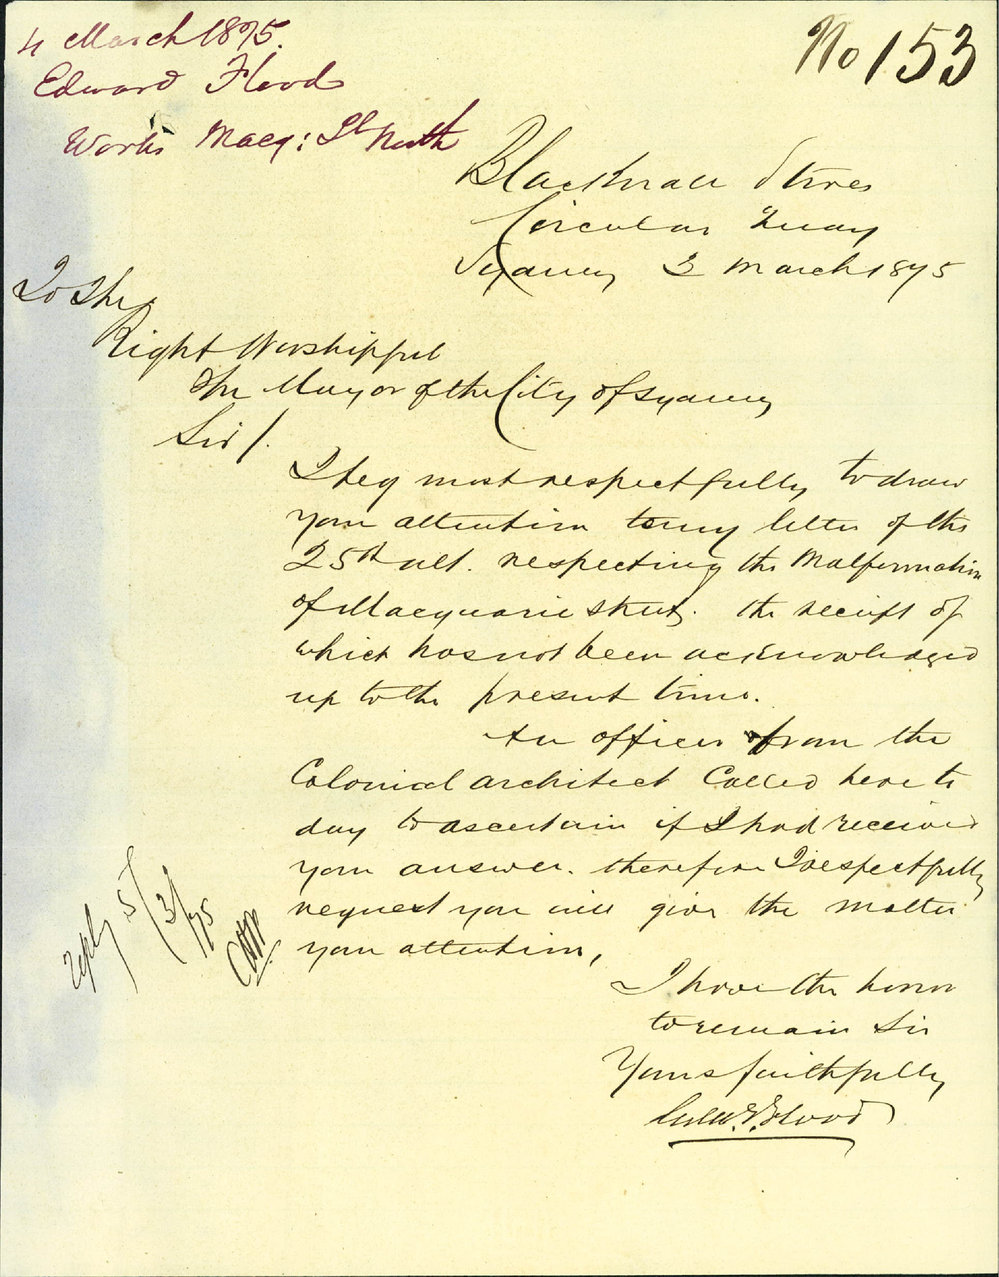 4 March 1875.
Edward Flood
Works Macq: St North
No 153
Blackwall Stores
Circular Quay
Sydney 3 March 1875
To The
Right Worshipful
The Mayor of the City of Sydney
Sir/.
I beg most respectfully to draw
your attention to my letter of the
25th ult. respecting the Malformation
of Macquarie Street. the receipt of
which has not been acknowledged
up to the present time.
An officer from the
Colonial architect Called here to
day to ascertain if I had received
your answer. therefore I respectfully
request you will give the matter
your attention,
reply 5/3/75
I have the honor
to remain Sir
Yours faithfully
Flood